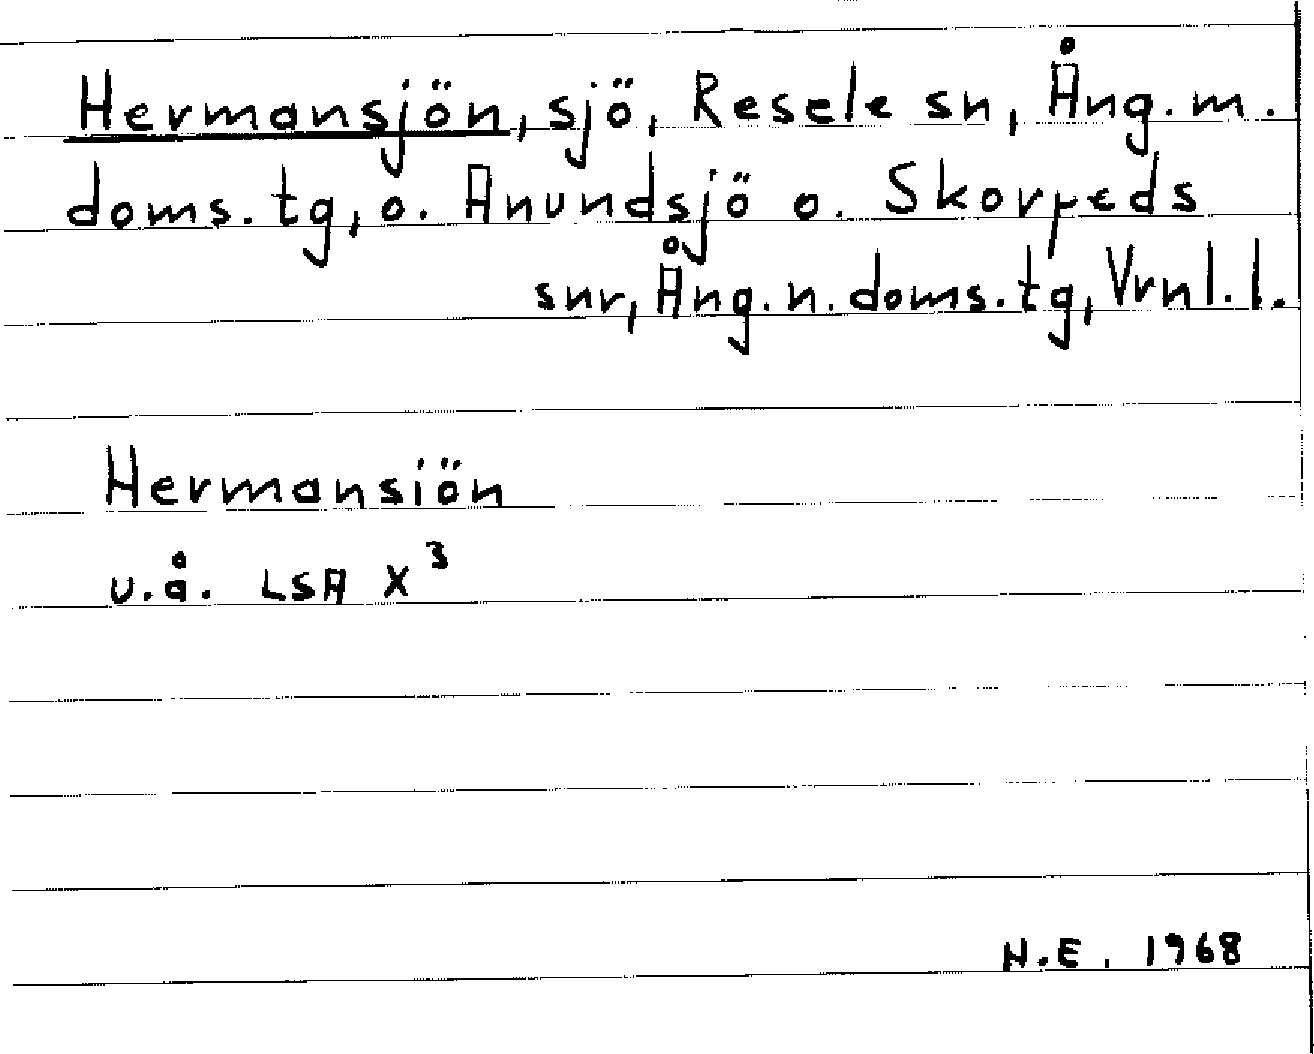 Hermansjön, sjö, Resele sn, Ång. m.
doms. tg, o. Anundsjö o. Skorpeds
snr, Ång. n. doms. tg, Vrnl. l.
Hermansiön
u.å. LSA X³
N.E. 1968